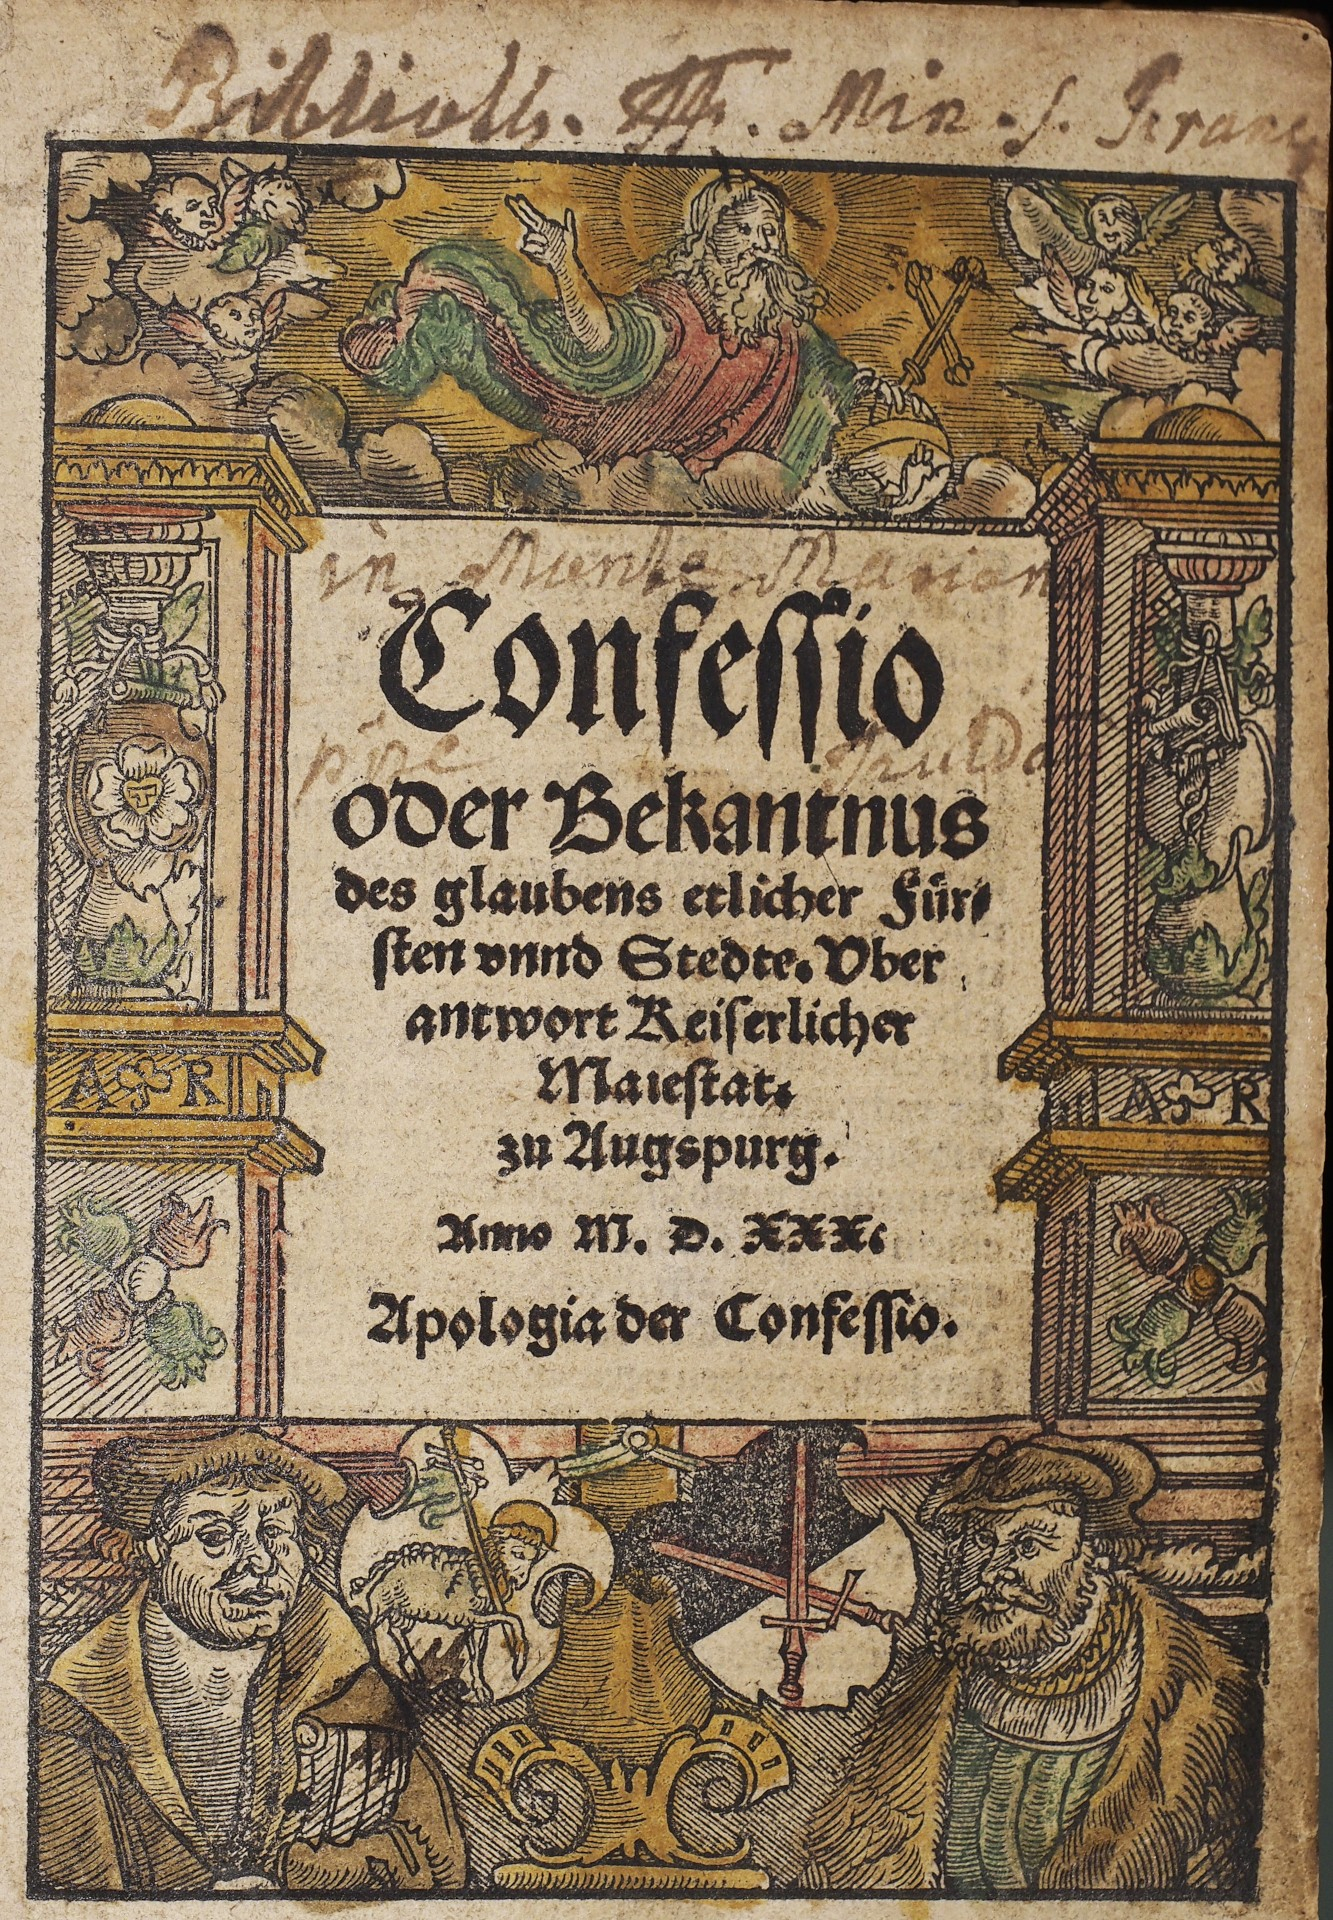 Biblioth. FF. Min. S. Franc
in Monte Marian
Confessio
p̄pe Fulda
oder Bekantnus
des glaubens etlicher Für⸗
sten vnnd Stedte. Vber
antwort Keiserlicher
Maiestat.
zu Augspurg.
Anno M. D. XXX.
Apologia der Confessio.
A R
A R